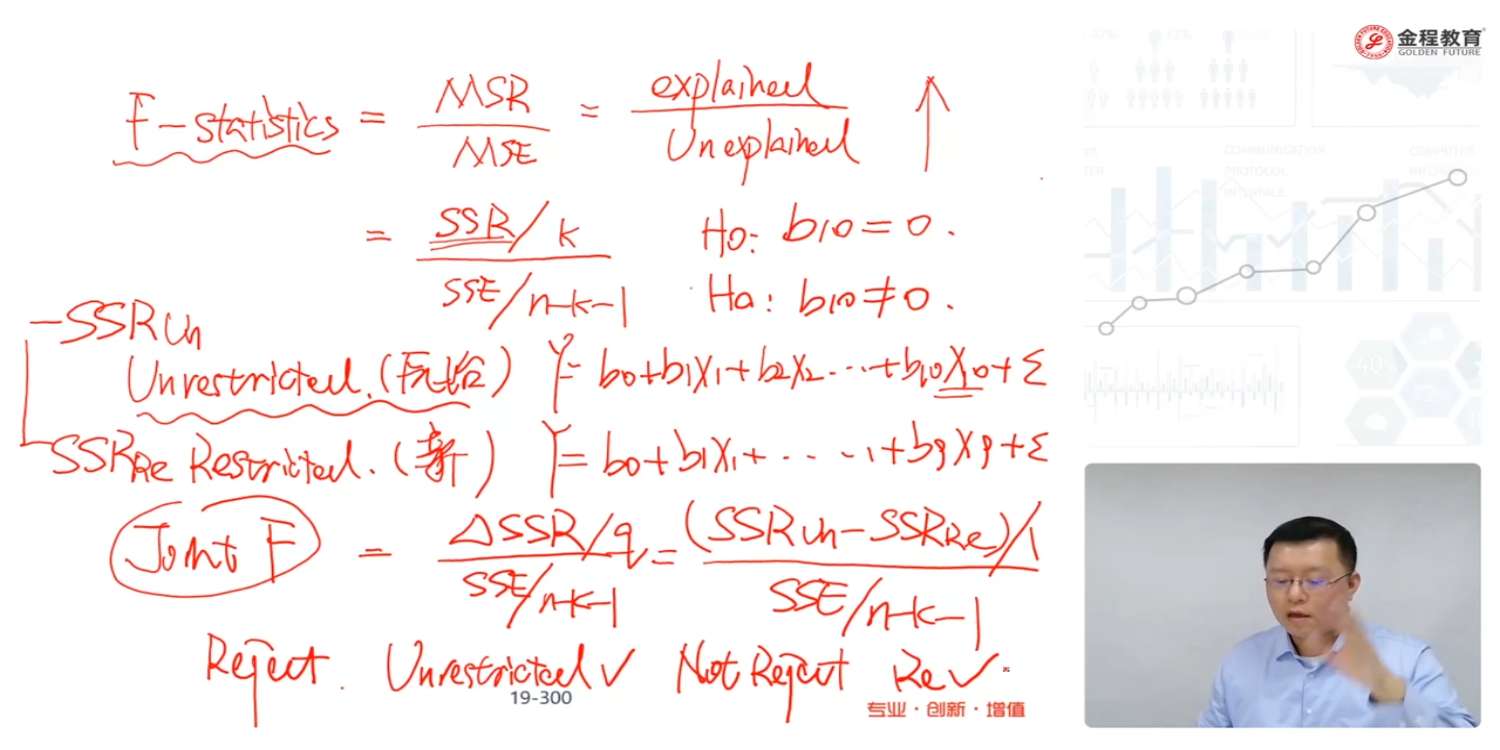 金程教育
GOLDEN FUTURE
F-statistics = MSR/MSE = explained/Unexplained ↑
= SSR/k / SSE/n-k-1
H0: b10=0.
Ha: b10≠0.
SSRun
Unrestricted.(原始) Y=b0+b1X1+b2X2...+b10X10+ε
SSRRe Restricted.(新) Y=b0+b1X1+....+b9X9+ε
Joint F = ΔSSR/q / SSE/n-k-1 = (SSRun-SSRRe)/1 / SSE/n-k-1
Reject. Unrestricted✓ Not Reject Re✓
19-300
专业·创新·增值